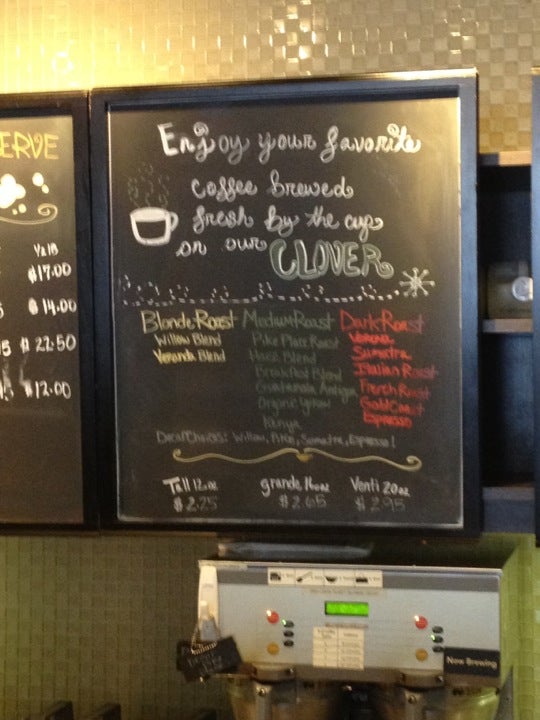 ERVE
½ lb
$17.00
$14.00
$22.50
$12.00
Enjoy your favorite
coffee brewed
fresh by the cup
on our CLOVER
Blonde Roast
Willow Blend
Veranda Blend
Medium Roast
Pike Place Roast
House Blend
Breakfast Blend
Guatemala Antigua
Organic Yukon
Kenya
Dark Roast
Verona
Sumatra
Italian Roast
French Roast
Gold Coast
Espresso
Decaf Choices: Willow, Pike, Sumatra, Espresso!
Tall 12oz
$2.25
grande 16oz
$2.65
Venti 20oz
$2.95
Now Brewing